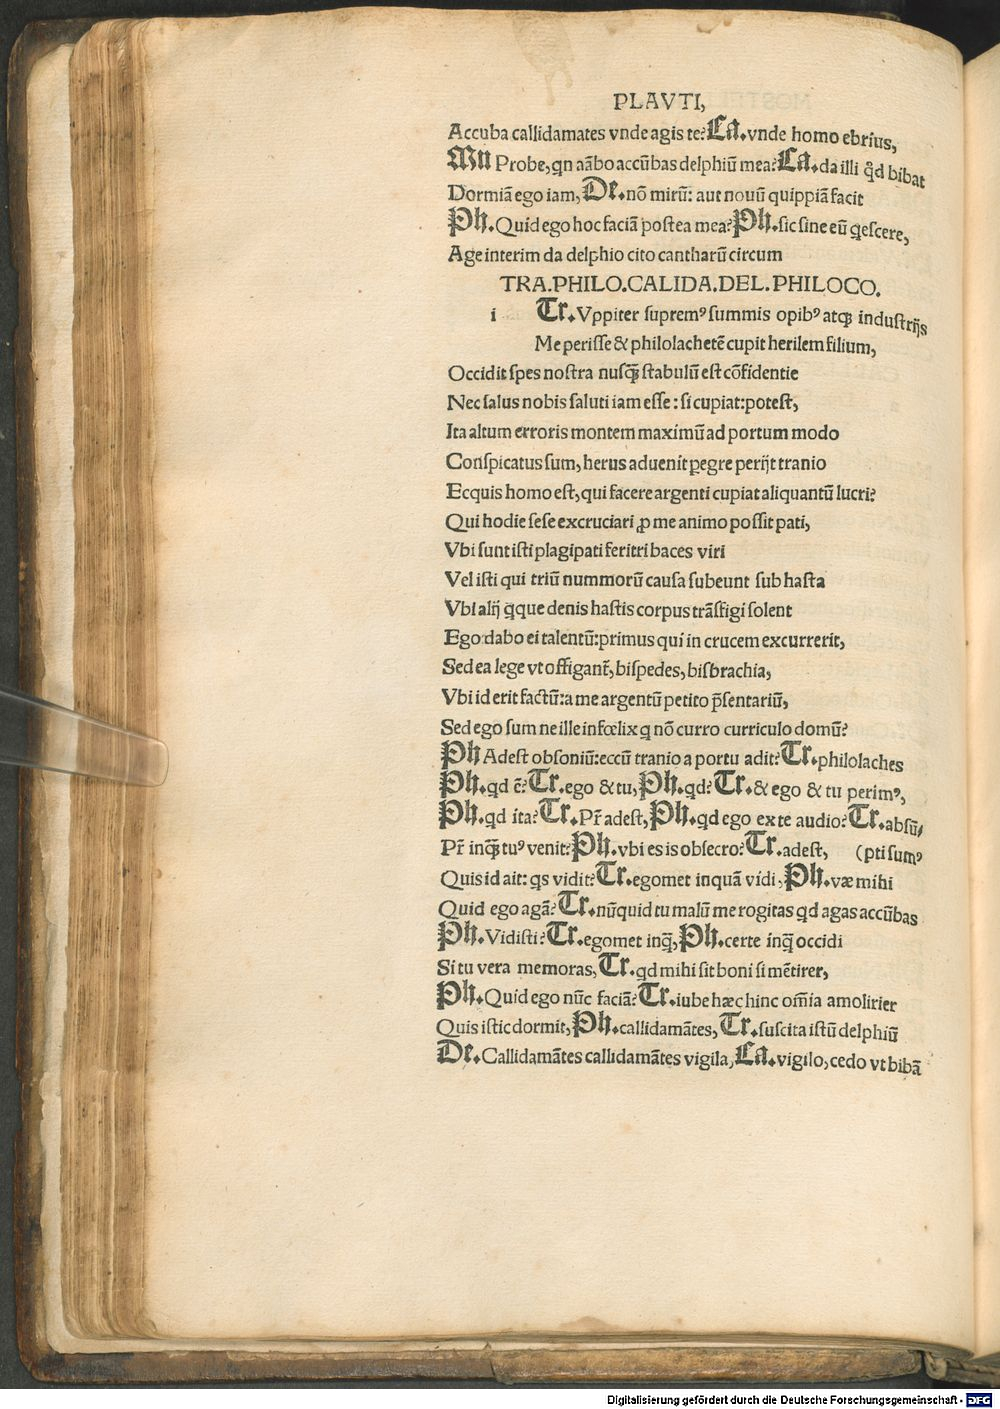 PLAVTI,
Accuba callidamates vnde agis te? Ca. vnde homo ebrius,
Mu Probe, qn aābo accūbas delphiū mea? Ca. da illi qd bibat
Dormiā ego iam, De. nō mirū: aut nouū quippiā facit
Ph. Quid ego hoc faciā postea mea? Ph. sic sine eū qescere,
Age interim da delphio cito cantharū circum
TRA. PHILO. CALIDA. DEL. PHILOCO.
i Tr. Vppiter supremꝰ summis opibꝰ atqꝫ industrijs
Me perisse & philolachetē cupit herilem filium,
Occidit spes nostra nusqꝫ stabulū est cōfidentie
Nec salus nobis saluti iam esse: si cupiat: potest,
Ita altum erroris montem maximū ad portum modo
Conspicatus sum, herus aduenit ꝑegre perijt tranio
Ecquis homo est, qui facere argenti cupiat aliquantū lucri?
Qui hodie sese excruciari ꝓ me animo possit pati,
Vbi sunt isti plagipati feritri baces viri
Vel isti qui triū nummorū causa subeunt sub hasta
Vbi alij qque denis hastis corpus trāsfigi solent
Ego dabo ei talentū: primus qui in crucem excurrerit,
Sed ea lege vt offigant̄, bispedes, bisbrachia,
Vbi id erit factū: a me argentū petito p̄sentariū,
Sed ego sum ne ille infœlix q nō curro curriculo domū?
Ph Adest obsoniū: eccū tranio a portu adit? Tr. philolaches
Ph. qd ē? Tr. ego & tu, Ph. qd? Tr. & ego & tu perimꝰ,
Ph. qd ita? Tr. Pr̄ adest, Ph. qd ego ex te audio? Tr. absū/
Pr̄ inqꝫ tuꝰ venit? Ph. vbi es is obsecro? Tr. adest, (pti sumꝰ
Quis id ait: qs vidit? Tr. egomet inquā vidi, Ph. væ mihi
Quid ego agā? Tr. nūquid tu malū me rogitas qd agas accūbas
Ph. Vidisti? Tr. egomet inq̄, Ph. certe inq̄ occidi
Si tu vera memoras, Tr. qd mihi sit boni si mētirer,
Ph. Quid ego nūc faciā? Tr. iube hæc hinc om̄ia amolirier
Quis istic dormit, Ph. callidamātes, Tr. suscita istū delphiū
De. Callidamātes callidamātes vigila, Ca. vigilo, cedo vt bibā
Digitalisierung gefördert durch die Deutsche Forschungsgemeinschaft - DFG